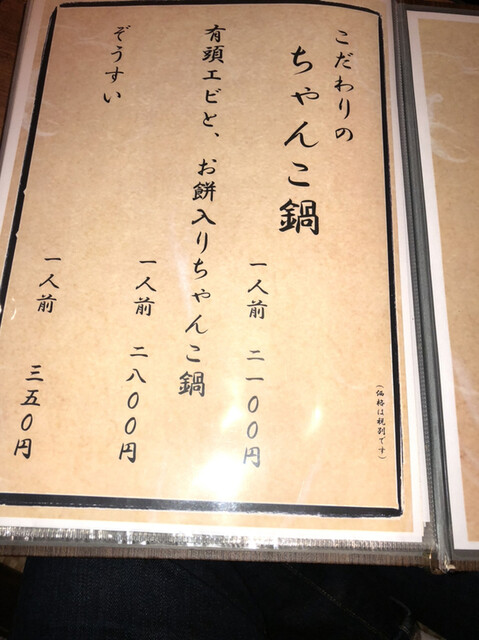 こだわりの
ちゃんこ鍋
一人前 二一〇〇円
有頭エビと、お餅入りちゃんこ鍋
一人前 二八〇〇円
ぞうすい
一人前 三五〇円
(価格は税別です)